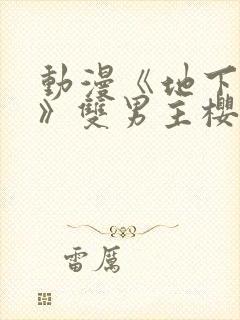 動漫《地下
》雙男主櫻
雷厲